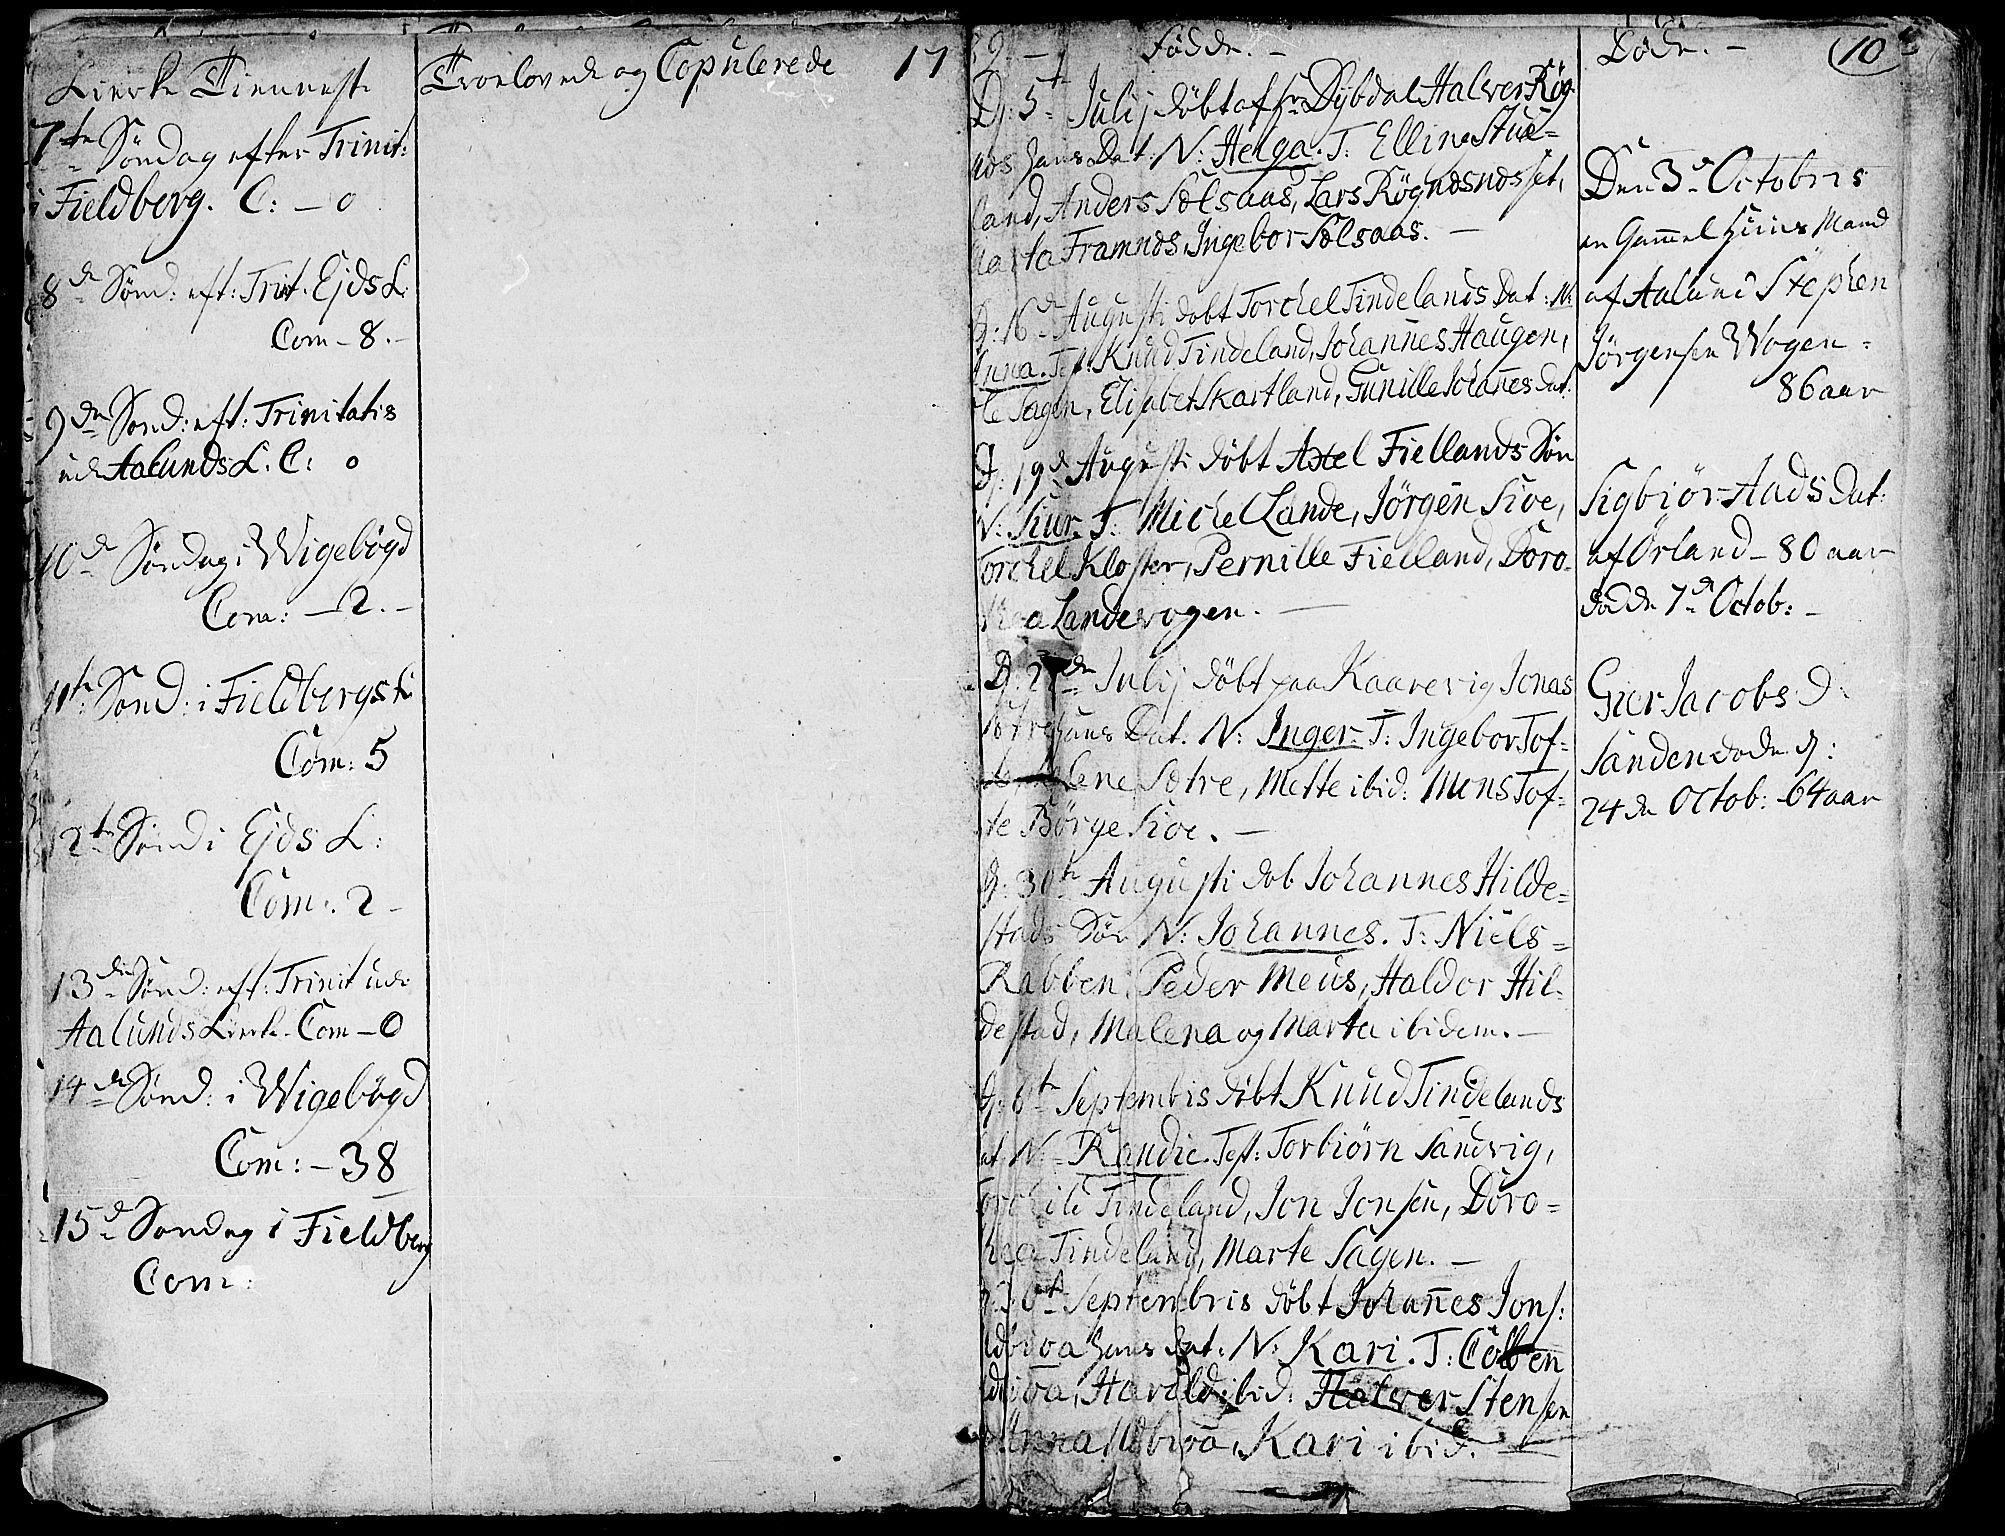 Kierke Tienneste
7de Söndag efter Trinit:
i Fieldberg. C: - 0
8de Sönd: eft: Trit. Ejds K:
Com - 8. -
9de Sönd: eft: Trinitatis
udi Aalunds K. C: 0
10de Söndag i Wigebögd
Com: - 2. -
11te Sönd: i Fieldbergs K
Com: 5
12te Sönd i Ejds K:
Com:. 2 -
13de Sönd: eft: Trinit udi
Aalunds Kierke - Com - 0
14de Sönd: i Wigebögd
Com: - 38
15de Söndag i Fieldberg
Com:
Troelovede og Copulerede 17
39. - Födde. -
D: 5te Julij döbt af Hr Dÿbdal Halver Rög
nds Hans Dat. N: Helga. T: Elling Stue=
land, Anders Solsaas, Lars Rögndsnds set,
Marta Framnds, Ingebor Solsaas. -
D: 16de Augusti döbt Torchel Tindelands Dat: N:
Anna. Test: Knud Tindeland, Johannes Haugen,
Ole Sagen, Elisabet Skartland, Gunille Johanes Dat:
D: 19de Augusti döbt Axel Fiellands Sön
N: Siur. T: Michel Lande, Jörgen Sioe,
Torchel Kloster, Pernille Fielland, Doro=
thea Landevogen. -
D: 2 de Julij döbt paa Kaarevig Jonas
Sötre hans Dat. N: Inger. T: Ingebor Tof=
te Lene Sotre, Mette ibid: Mons Tof=
te Börge Sioe. -
D: 30te Augusti döb Johannes Hilde=
stads Sön N: Johannes. T: Niels =
Rabben, Peder Meus, Haldor Hil=
destad, Malena og Marta ibidem. -
D: 6te Septembris döbt Knud Tindelands
Dat N: Randie. Test: Torbiörn Sandvig,
Torchild Tindeland, Jon Jonsen, Doro=
thea Tindeland, Marte Sagen. -
D: 6te Septembris döbt Johanes Jons:
Hans Dat. N: Kari. T: Colben
Harald ibid: Halver Stensen
Anna Kari ibid. -
Döde. - 10
Den 3de Octobris
en Gammel Huus Mand
af Aalund Stephen
Jörgensen Wogen =
86 aar
Sigbiör Aads Dat:
af Orland - 80 aar
död d. 7de Octob: -
Gier Jacobs D:
Sanden döde d:
24de Octob: 64 aar